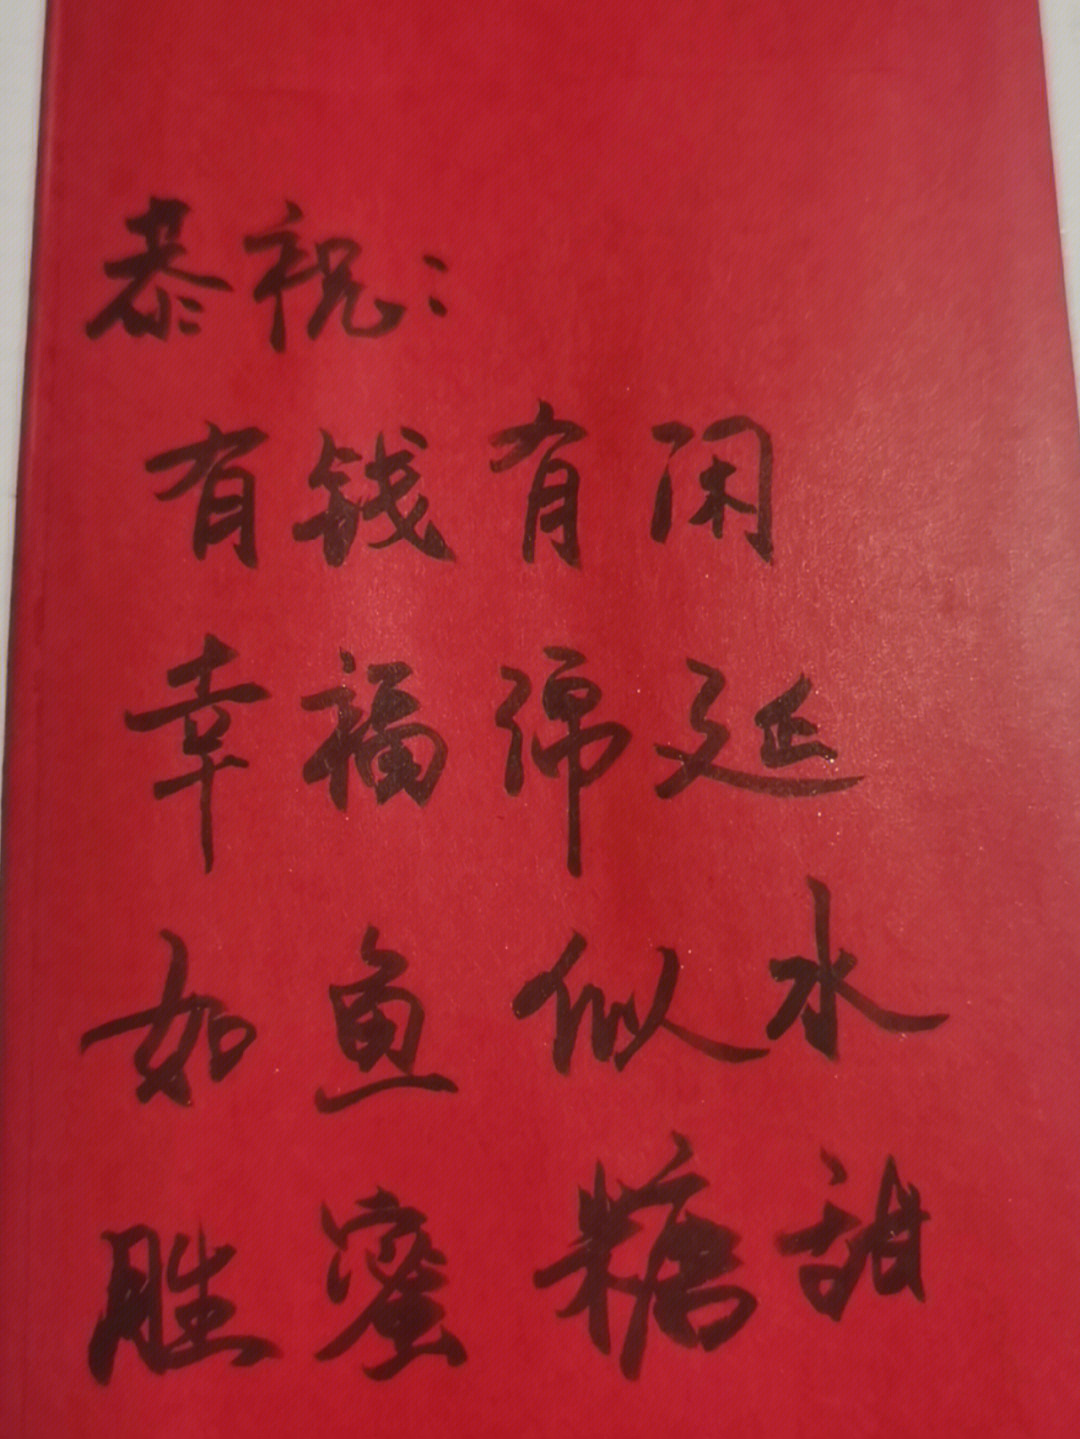 恭祝：
有钱有闲
幸福绵延
如鱼似水
胜蜜糖甜